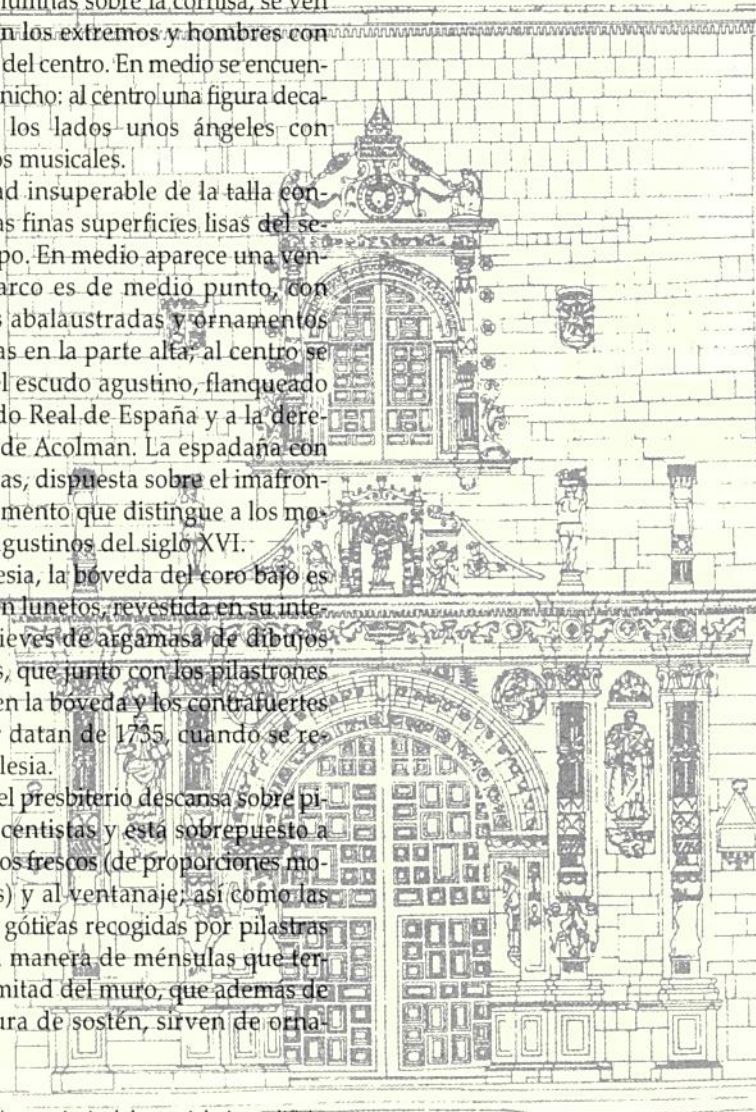 lumnas sobre la cornisa, se ven
n los extremos y hombres con
del centro. En medio se encuen-
nicho: al centro una figura deca-
los lados unos ángeles con
os musicales.
ad insuperable de la talla con-
as finas superficies lisas del se-
po. En medio aparece una ven-
arco es de medio punto, con
s abalaustradas y ornamentos
as en la parte alta; al centro se
el escudo agustino, flanqueado
do Real de España y a la dere-
de Acolman. La espadaña con
as, dispuesta sobre el imafron-
mento que distingue a los mo-
gustinos del siglo XVI.
esia, la bóveda del coro bajo es
n lunetos, revestida en su inte-
ieves de argamasa de dibujos
s, que junto con los pilastrones
en la bóveda y los contrafuertes
r datan de 1735, cuando se re-
lesia.
el presbiterio descansa sobre pi-
centistas y está sobrepuesto a
os frescos (de proporciones mo-
s) y al ventanaje; así como las
góticas recogidas por pilastras
manera de ménsulas que ter-
mitad del muro, que además de
ura de sostén, sirven de orna-